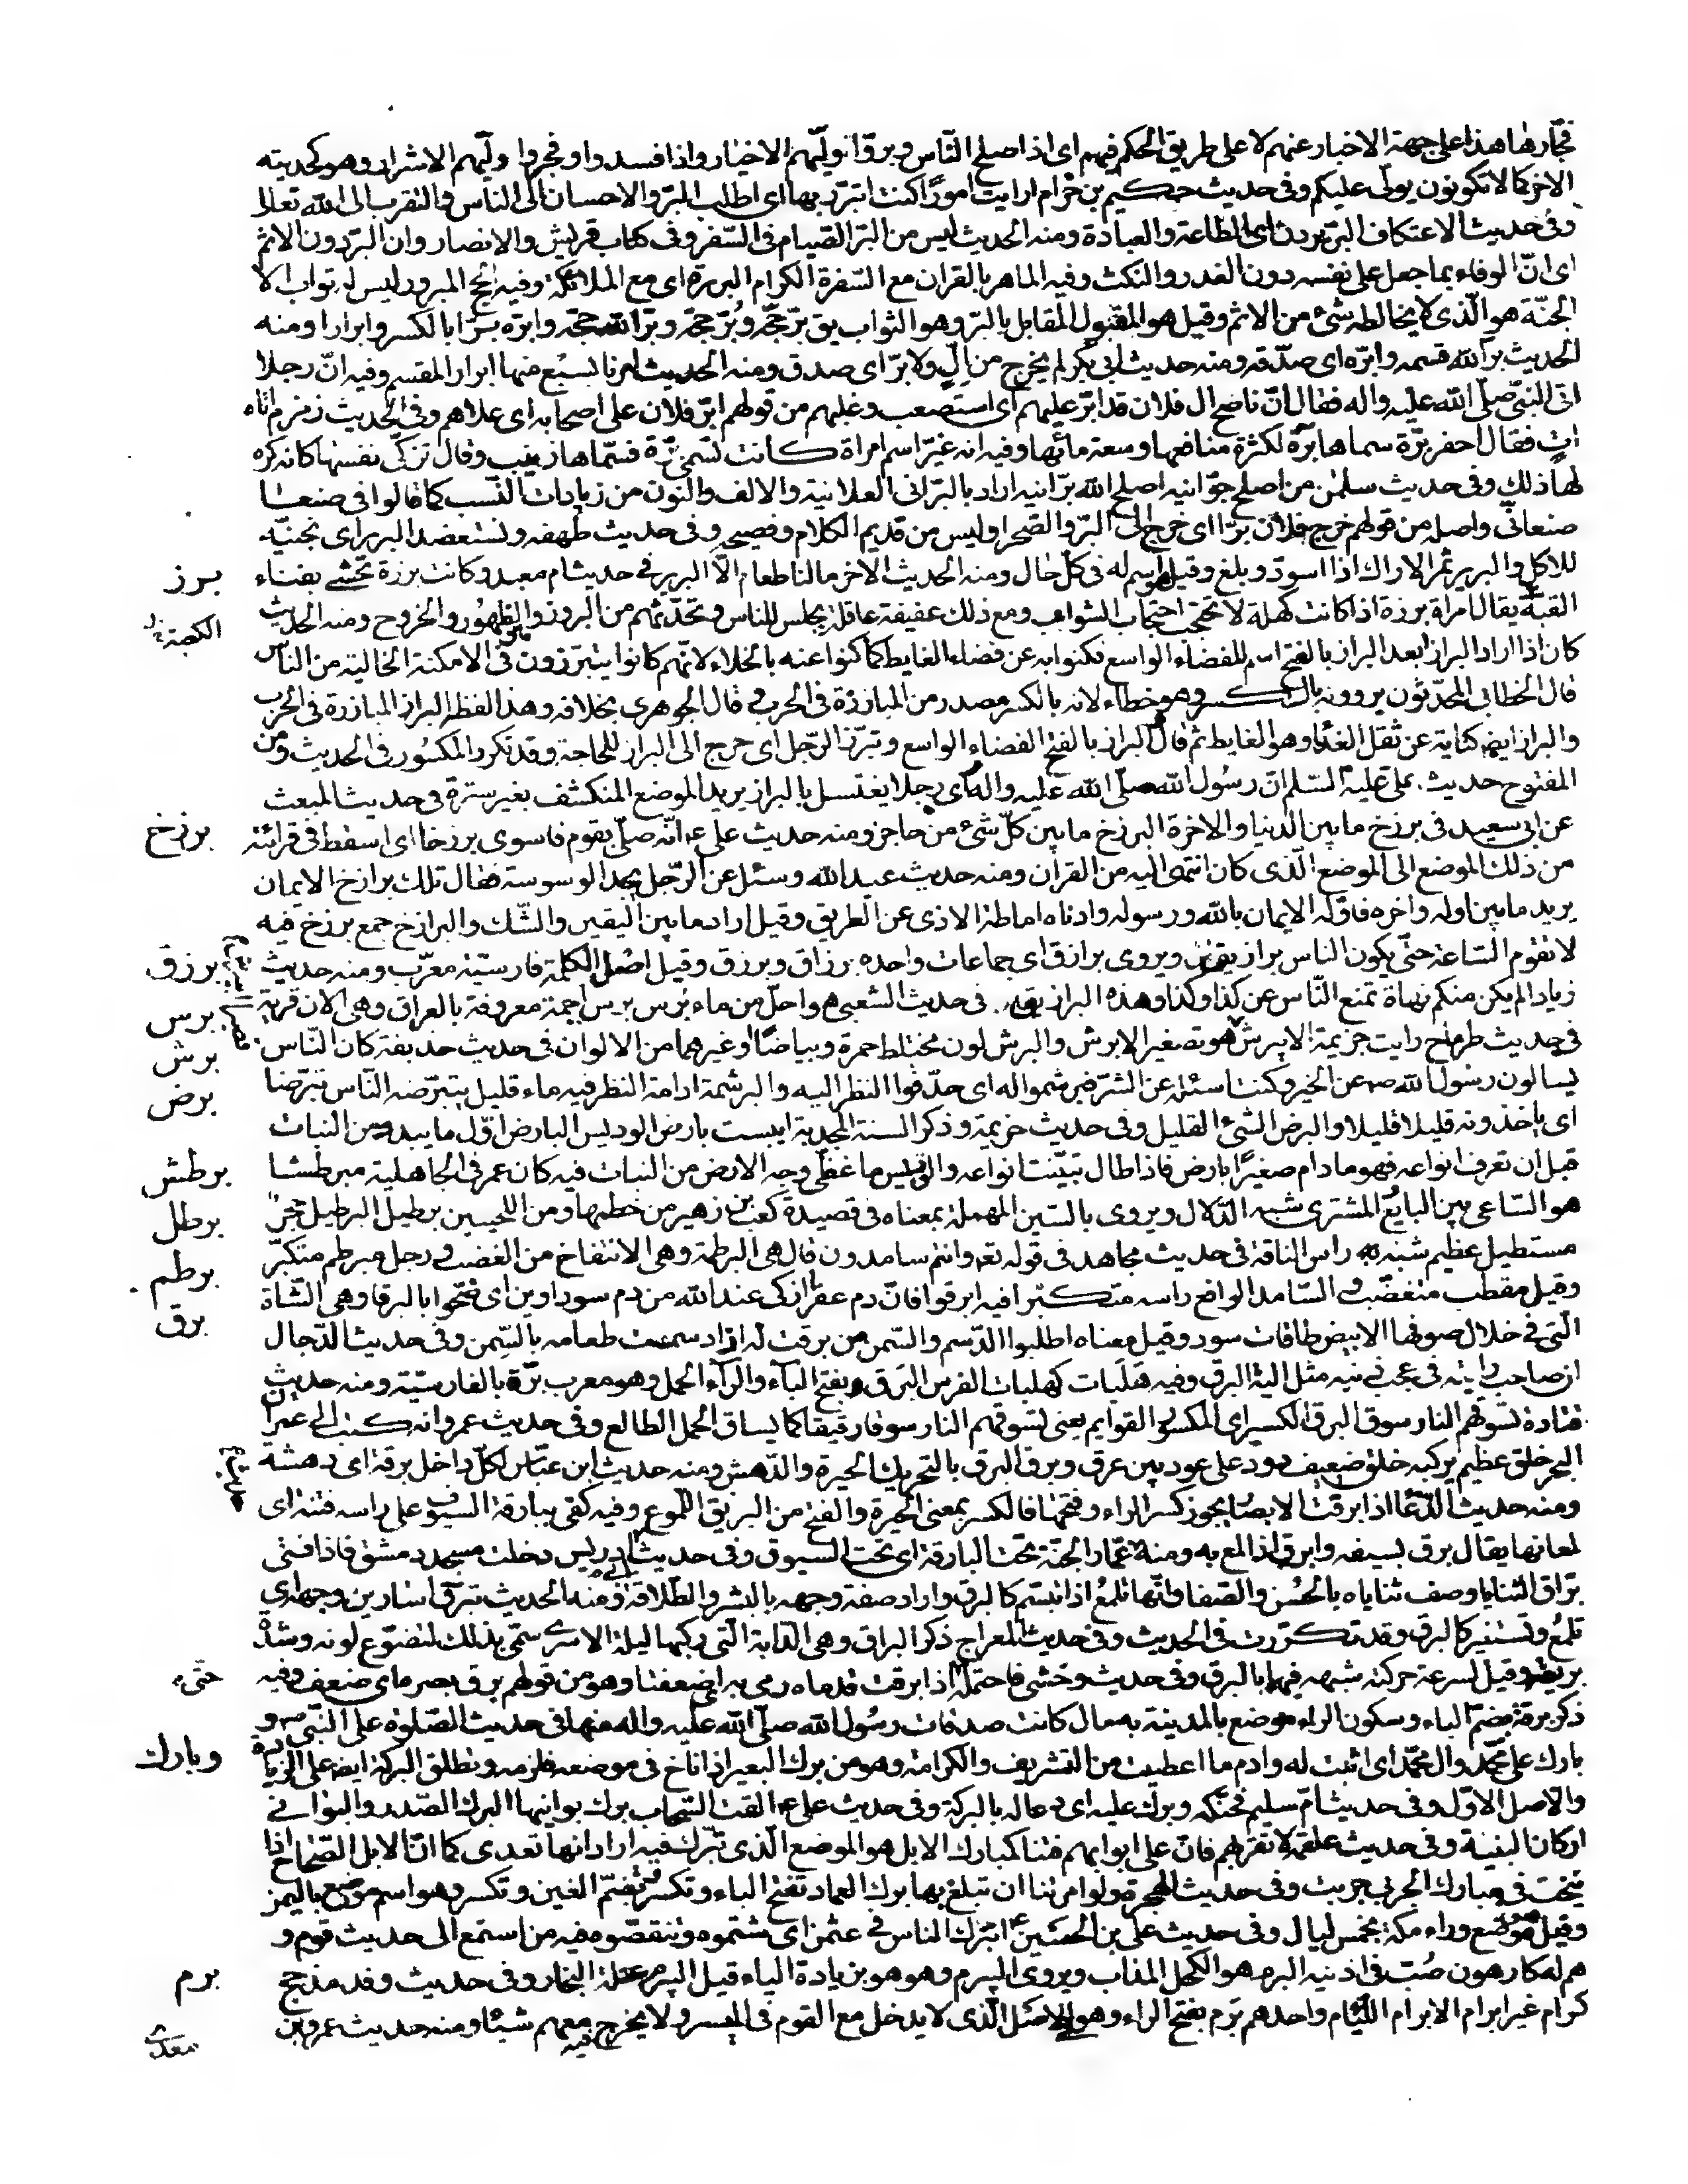 فجّارها هذا على جهة الاخبار عنهم لا على طريق الحكم فيهم اى اذا صلح النّاس وبرّوا توليّهم الاخيار واذا فسدوا وفجروا وليّهم الاشرار وهو كحديثه
الاخر كما لا تكونون يولّى عليكم وفى حديث حكيم بن حزام ارايت امورًا كنت اتبرّر بها اى اطلب البرّ والاحسان الى النّاس والتقرب الى الله تعالى
وفى حديث الاعتكاف البرّ يردن اى الطاعة والعبادة ومنه الحديث ليس من البرّ الصّيام فى السّفر وفى كتاب قريش والانصار وان البرّ دون الاثم
اى انّ الوفاء بما جعل على نفسه دون الغدر والنكث وفيه الماهر بالقران مع السّفرة الكرام البررة اى مع الملائكة وفيه الحجّ المبرور ليس له ثواب الا
الجنّة هو الّذى لا يخالطه شىء من الاثم وقيل هو المقبول المقابل بالبرّ وهو الثواب يق برّ حجّه وبُرّ حجّه وبرّ الله حجّه وابرّه برّا بالكسر وابرارا ومنه
الحديث برّ الله قسمه وابرّه اى صدّقه ومنه حديث ابى بكر لم يخرج من اِلّ ولا برّ اى صدق ومنه الحديث امرنا بسبع منها ابرار المقسم وفيه انّ رجلا
اتى النبىّ صلّى الله عليه واله فقال انّ ناضح ال فلان قد ابرّ عليهم اى استصعب وغلبهم من قولهم ابرّ فلان على اصحابه اى علاهم وفى الحديث زمزم اتاه
اتٍ فقال احفر برّة سماها برّة لكثرة منافعها وسعة مائها وفيه انه غيّر اسم امراة كانت تسمّى برّة فسمّاها زينب وقال تزكّى نفسها كانه كره
لها ذلك وفى حديث سلمن من اصلح جوّانيه اصلح الله برّانيه اراد بالبرّانى العلانية والالف والنون من زيادات النّسب كما قالوا فى صنعا
صنعانى واصله من قولهم خرج فلان برّا اى خرج الى البرّ والصّحرا وليس من قديم الكلام وفصيحه وفى حديث طهفه ونستعضد البرير اى نجنيّه
للاكل والبرير ثمر الاراك اذا اسودّ وبلغ وقيل هو اسم له فى كلّ حال ومنه الحديث الاخر مالنا طعام الّا البرير فى حديث ام معبد وكانت برزة تحتبى بفناء
برز
القبّة يقال امراة برزة اذا كانت كهلة لا تحتجب احتجاب الشّواب ومع ذلك عفيفة عاقلة تجلس للناس وتحدّثهم من البروز والظهُور والخروج ومنه الحديث
الكعبة
كان اذا اراد البراز ابعد البراز بالفتح اسم للفضاء الواسع فكنوا به عن قضاء الغايط كما كنوا عنه بالخلاء لانّهم كانوا يتبرّزون فى الامكنة الخالية من الناس
قال الخطابى المحدّثون يروونه بالكسر وهو خطاء لانه بالكسر مصدر من المبارزة فى الحرب وقال الجوهرى بخلافه وهذا لفظه البراز المبارزة فى الحرب
والبراز ايضا كناية عن ثفل الغذا وهو الغايط ثم قال والبراز بالفتح الفضاء الواسع وتبرّز الرّجل اى خرج الى البراز للحاجة وقد تكرر المكسُور فى الحديث ومن
المفتوح حديث على عليه السّلم انّ رسُول الله صلّى الله عليه واله راى رجلا يغتسل بالبراز يريد الموضع المنكشف بغير سترة فى حديث المبعث
عن ابى سعيد فى برزخ ما بين الدنيا والاخرة البرزخ ما بين كلّ شىء من حاجز ومنه حديث علىّ ع انّه صلّى بقوم فاسوى برزخا اى اسقط فى قرائته
برزخ
من ذلك الموضع الى الموضع الّذى كان انتهى اليه من القران ومنه حديث عبد الله وسئل عن الرّجل يجد الوسوسة فقال تلك برازخ الايمان
يريد ما بين اوله واخره فاوّله الايمان بالله ورسوله وادناه اماطة الاذى عن الطريق وقيل اراد ما بين اليقين والشّك والبرازخ جمع برزخ فيه
لا تقوم السّاعة حتّى يكون الناس برازيق ويروى برازق اى جماعات واحده برزاق وبرزق وقيل اصْل الكلمة فارسيّة معرّب ومنه حديث
برزق
زياد الم يكن منكم نهاة تمنع النّاس عن كذا وكذا وهذه البرازيق فى حديث الشّعبى هو احلّ من ماء بُرس برس اجمة معروفة بالعراق وهى الان قرية
برس
فى حديث طرماح رايت جزيمة الابرش هو تصغير الابرش والبرش لون مختلط حمرة وبياضًا او غيرهما من الالوان فى حديث حديفة كان النّاس
برش
يسالون رسُول الله ص عن الخير وكنت اسئله عن الشرّ فبرشموا له اى حدّقوا النظر اليه والبرشمة ادامة النظر فيه ماء قليل يتبرّضه النّاس تبرّضا
برض
اى ياخذونه قليلا قليلا والبرض الشىء القليل وفى حديث خزيمة وذكر السنة المجدبة ايبست بارض الوديس البارض اوّل ما يبدو من النبات
قبل ان تعرف انواعه فهو ما دام صغيرًا بارض فاذا طال تبيّنت انواعه والوديس ما غطى وجه الارض من النبات فيه كان عمر فى الجاهلية مبرطشا
برطش
هو السّاعى بين البايع والمشترى شبه الدّلال ويروى بالسّين المهملة بمعناه فى قصيدة كعب بن زهير من خطمها ومن اللحيين برطيل البرطيل حجر
برطل
مستطيل عظيم شبّه به راس الناقة فى حديث مجاهد فى قوله تعالى وانتم سامدون قال هى البرطمة وهى الانتفاخ من الغضب ورجل مبرطم متكبّر
برطم
وقيل مقطب متغضّب والسّامد الرافع راسه متكبّرا فيه ابرقوا فانّ دم عفرا ازكى عند الله من دم سوداوين اى ضحّوا بالبرقا وهى الشّاة
برق
الّتى فى خلال صوفها الابيض طاقات سود وقيل معناه اطلبوا الدّسم والسّمن من برقت له اذا دسمت طعامه بالسّمن وفى حديث الدّجال
ان صاحب رايته فى عجب ذنبه مثل الية البرق وفيه هَلَبات كهلبات الفرس البَرَق بفتح الباء والراء الحمل وهو معرب برّة بالفارسيّة ومنه حديث
قتادة تسوقهم النار سوق البرق الكسير اى المكسور القوايم يعنى تسوقهم النار سوقا رقيقا كما يساق الحمل الظالع وفى حديث عمرو انه كتب الى عمر انّ
البحر خلق عظيم يركبه خلق ضعيف دود على عود بين غرق وبرق البرق بالتحريك الحيرة والدّهش ومنه حديث ابن عبّاس لكلّ داخل برقة اى دهشة
ومنه حديث الدّعا اذا برقت الابصار يجوز كسر الراء وفتحها فالكسر بمعنى الحيرة والفتح من البريق اللّموع وفيه كفى ببارقة السيوف على راسه فتنة اى
لمعانها يقال برق بسيفه وابرق اذا لمع به ومنه عمّار الجنّة تحت البارقة اى تحت السيوف وفى حديث ابى ادريس دخلت مسجد دمشق فاذا فتى
برّاق الثنايا وصف ثناياه بالحُسْن والصّفا وانّها تلمعُ اذا تبسّم كالبرق واراد صفة وجهه بالبشر والطّلاقة ومنه الحديث تبرق اسارير وجهه اى
تلمعُ وتستنير كالبرق وقد تكرّرت فى الحديث وفى حديث المعراج ذكر البراق وهى الدّابة الّتى ركبها ليلة الاسرى سمّى بذلك لنصوع لونه وشدّة
بريقه وقيل لسرعة حركته شبهه فيهما بالبرق وفى حديث وحشى فاحتمله حتّى اذا برقت قدماه رمى به اى ضعفتا وهو من قولهم برق بصره اى ضعف وفيه
حتّى
ذكر برقة بضمّ الباء وسكون الراء موضع بالمدينة به مال كانت صدقات رسُول الله صلّى الله عليه واله منها فى حديث الصّلوة على النّبى ص و
بارك على محمّد وال محمّد اى اثبت له وادم ما اعطيت من التشريف والكرامة وهو من برك البعير اذا ناخ فى موضعه فلزمه وتطلق البركة ايض على الزيادة
وبارك
والاصل الاوّل وفى حديث امّ سليم فحنّكه وبرك عليه اى دعا له بالبركة وفى حديث علىّ ع القت السّحاب برك بوانيها البرك الصّدر والبوانى
اركان البنية وفى حديث علقمة لا تقربهم فانّ على ابوابهم فتنا كمبارك الابل هو الموضع الّذى تبرك فيه اراد انها تعدى كما انّ الابل الصّحاح اذا
انيخت فى مبارك الجربى جربت وفى حديث الهجرة ولو امرتنا ان تبلغ بها برك الغماد تفتح الباء وتكسر وتضمّ الغين وتكسر وهو اسم موضع باليمن
وقيل موضع وراء مكّة بخمس ليال وفى حديث علىّ بن الحسَين ابترك الناس فى عثمن اى شتموه وتنقصّوه فيه من استمع الى حديث قوم و
هم له كارهون صُبّ فى اذنيه البرم هو الكحل المذاب ويروى البيرم وهو هو بزيادة الياء قيل البيرم عتلة النجار وفى حديث وفد مذحج
برم
كرام غير ابرام الابرام اللئام واحدهم بَرَم بفتح الراء وهو فى الاصْل الّذى لا يدخل مع القوم فى الميسر ولا يخرج معهم فيه شيئا ومنه حديث عمرو بن
معد